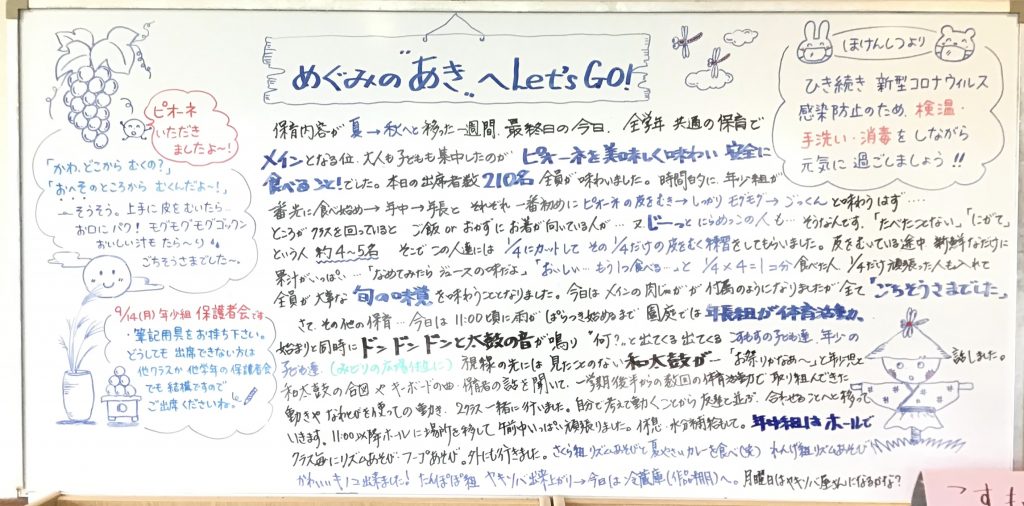 めぐみの"あき"へLet's GO!
ピオーネ
いただき
ましたよ〜!
「かわ、どこから むくの?」
「おへそのところから むくんだよ〜!」
…そうそう。上手に皮をむいたら…
お口にパク! モグモグモグゴックン
おいしい汁も たら〜り
ごちそうさまでした〜。
9/14(月)年少組 保護者会です
・筆記用具をお持ち下さい。
どうしても 出席できない方は
他クラスか他学年の保護者会
でも 結構ですので
ご出席くださいね。
ほけんしつより
ひき続き 新型コロナウィルス
感染防止のため、検温・
手洗い・消毒をしながら
元気に過ごしましょう!!
保育内容が 夏→秋へと移った一週間、最終日の今日、全学年 共通の保育で
メインとなる位、大人も子どもも集中したのが ピオーネを美味しく味わい 安全に
食べること!でした。本日の出席者数210名 全員が味わいました。時間的に、年少組が
番先に食べ始め→年中→年長と それぞれ 一番初めにピオーネの皮をむき→しっかりモグモグ→ごっくん と味わうはず…
ところが クラスを回っていると ご飯orおかずに お箸が向いている人が… 又 じーっとにらめっこの人も… そうなんです。「たべたことない」「にがて」
という人 約4〜5名 そこで この人達には 1/4にカットして その1/4だけの皮をむく練習をしてもらいました。皮をむいている途中 新鮮なだけに
果汁がいっぱい…「なめてみたら ジュースの味だよ」「おいしい…もう1つ食べる…」と 1/4×4=1コ分 食べた人、1/4だけ頑張った人も入れて
全員が 大事な 旬の味覚を味わうこととなりました。今日は メインの肉じゃがが 付属のようになりましたが 全て「ごちそうさまでした」
さて、その他の保育…今日は 11:00頃に雨が ぱらつき始めるまで 園庭では 年長組が体育活動、
始まりと同時に ドンドンドンと太鼓の音が鳴り "何?"と出てくる出てくる 年少の
子ども達(みどりの広場付近に) 視線の先には 見たことのない 和太鼓が…「お祭りかなあ〜」と 話しました。
和太鼓の合図やキーボードの曲・保育者の話を聞いて、一学期後半からの数回の体育活動で取り組んできた
動きや なわとびを使っての動き、2クラス一緒に行いました。自分で考えて動くことから 友達と並ぶ、合わせることへと移って
いきます。11:00以降ホールに場所を移して 午前中いっぱい頑張りました。休息・水分補給もして。年中組はホールで
クラス毎にリズムあそび・フープあそび。外にも行きました。さくら組リズムあそびと夏やさいカレーを食べ(笑) れんげ組リズムあそび
かわいいキノコ出来ました! たんぽぽ組 ヤキソバ出来上がり→今日は 冷蔵庫(作品棚)へ。月曜日はヤキソバ屋さんになるかな?